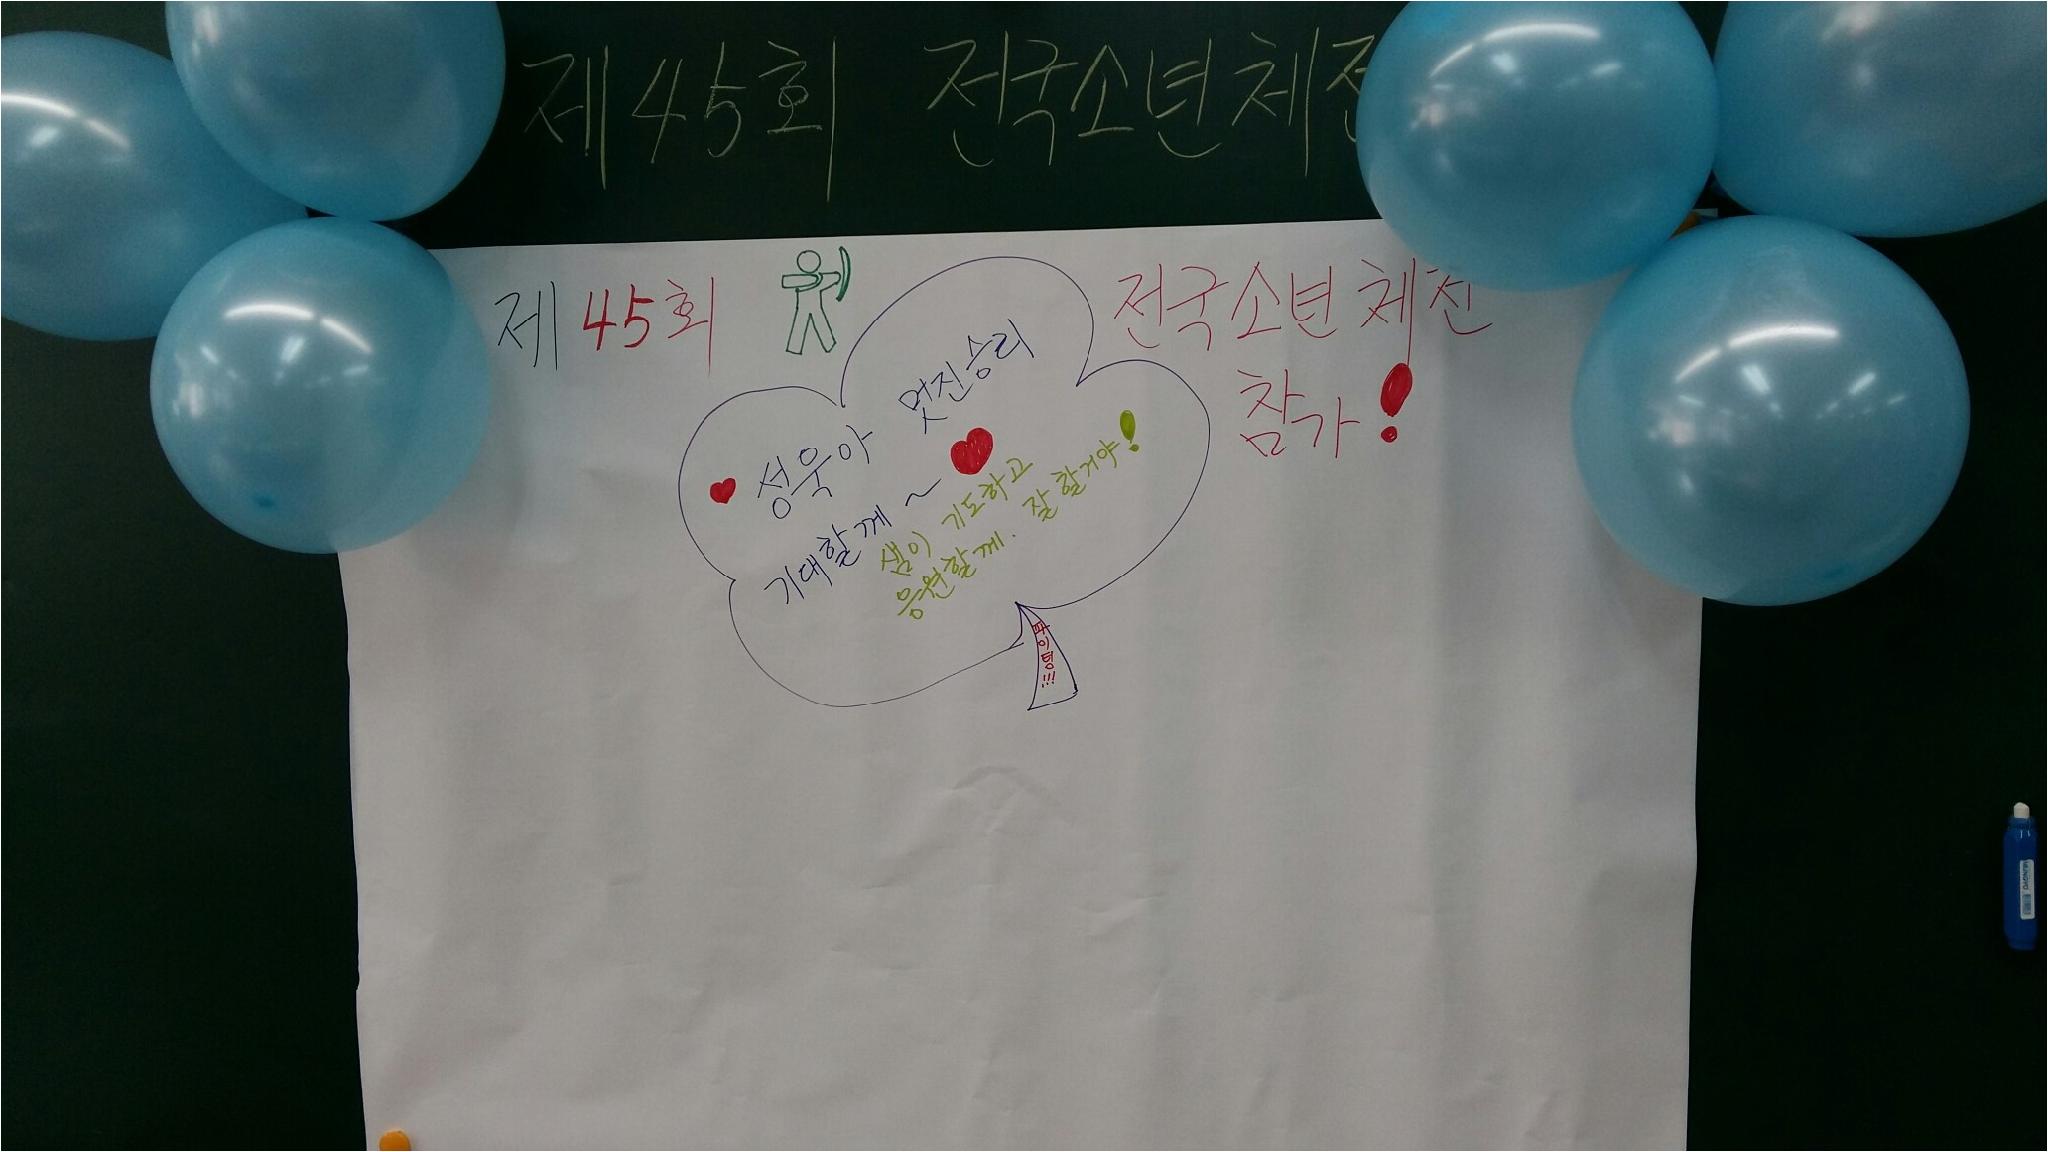 제45회 전국소년체전
제 45회 전국소년체전
참가!
성욱아 멋진승리
기대할께~
샘이 기도하고
응원할께. 잘 할거야!
화이팅!!!
MUNGYO